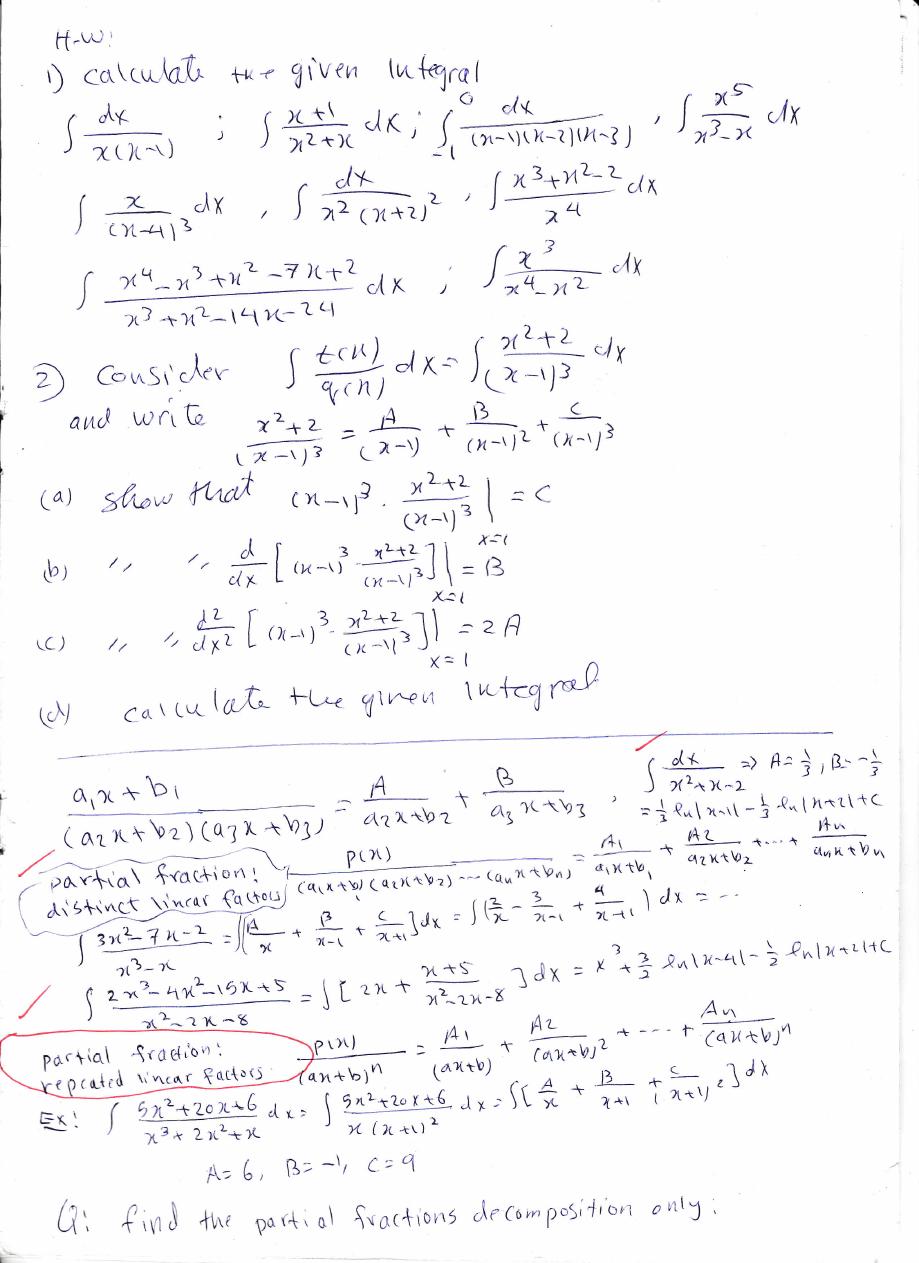 H-W:
1) calculate the given Integral
∫ dx/(x(x-1)) ; ∫ (x+1)/(x²+x) dx ; ∫₋₁⁰ dx/((x-1)(x-2)(x-3)) , ∫ x⁵/(x³-x) dx
∫ x/(x-4)³ dx , ∫ dx/(x²(x+2)²) , ∫ (x³+x²-2)/x⁴ dx
∫ (x⁴-x³+x²-7x+2)/(x³+x²-14x-24) dx ; ∫ x³/(x⁴-x²) dx
2) consider ∫ t(x)/q(x) dx = ∫ (x²+2)/(x-1)³ dx
and write (x²+2)/(x-1)³ = A/(x-1) + B/(x-1)² + C/(x-1)³
(a) show that (x-1)³ · (x²+2)/(x-1)³ | x=1 = C
(b) " " d/dx [(x-1)³ · (x²+2)/(x-1)³] | x=1 = B
(c) " " d²/dx² [(x-1)³ · (x²+2)/(x-1)³] | x=1 = 2A
(d) calculate the given integral
(a₁x+b₁)/((a₂x+b₂)(a₃x+b₃)) = A/(a₂x+b₂) + B/(a₃x+b₃) , ∫ dx/(x²+x-2) ⇒ A=1/3, B=-1/3
= 1/3 ln|x-1| - 1/3 ln|x+2| + C
partial fraction:
distinct linear factors
P(x)/((a₁x+b₁)(a₂x+b₂)....(aₙx+bₙ)) = A₁/(a₁x+b₁) + A₂/(a₂x+b₂) + ....+ Aₙ/(aₙx+bₙ)
∫ (3x²-7x-2)/(x³-x) = ∫[A/x + B/(x-1) + C/(x+1)] dx = ∫(2/x - 3/(x-1) + 4/(x+1)) dx = ...
∫ (2x³-4x²-15x+5)/(x²-2x-8) = ∫[2x + (x+5)/(x²-2x-8)] dx = x³ + 3/2 ln|x-4| - 1/2 ln|x+2|+C
partial fraction:
repeated linear factors.
P(x)/(ax+b)ⁿ = A₁/(ax+b) + A₂/(ax+b)² + .... + Aₙ/(ax+b)ⁿ
Ex: ∫ (5x²+20x+6)/(x³+2x²+x) dx = ∫ (5x²+20x+6)/(x(x+1)²) dx = ∫[A/x + B/(x+1) + C/(x+1)²] dx
A=6, B=-1, C=9
Q: find the partial fractions decomposition only: